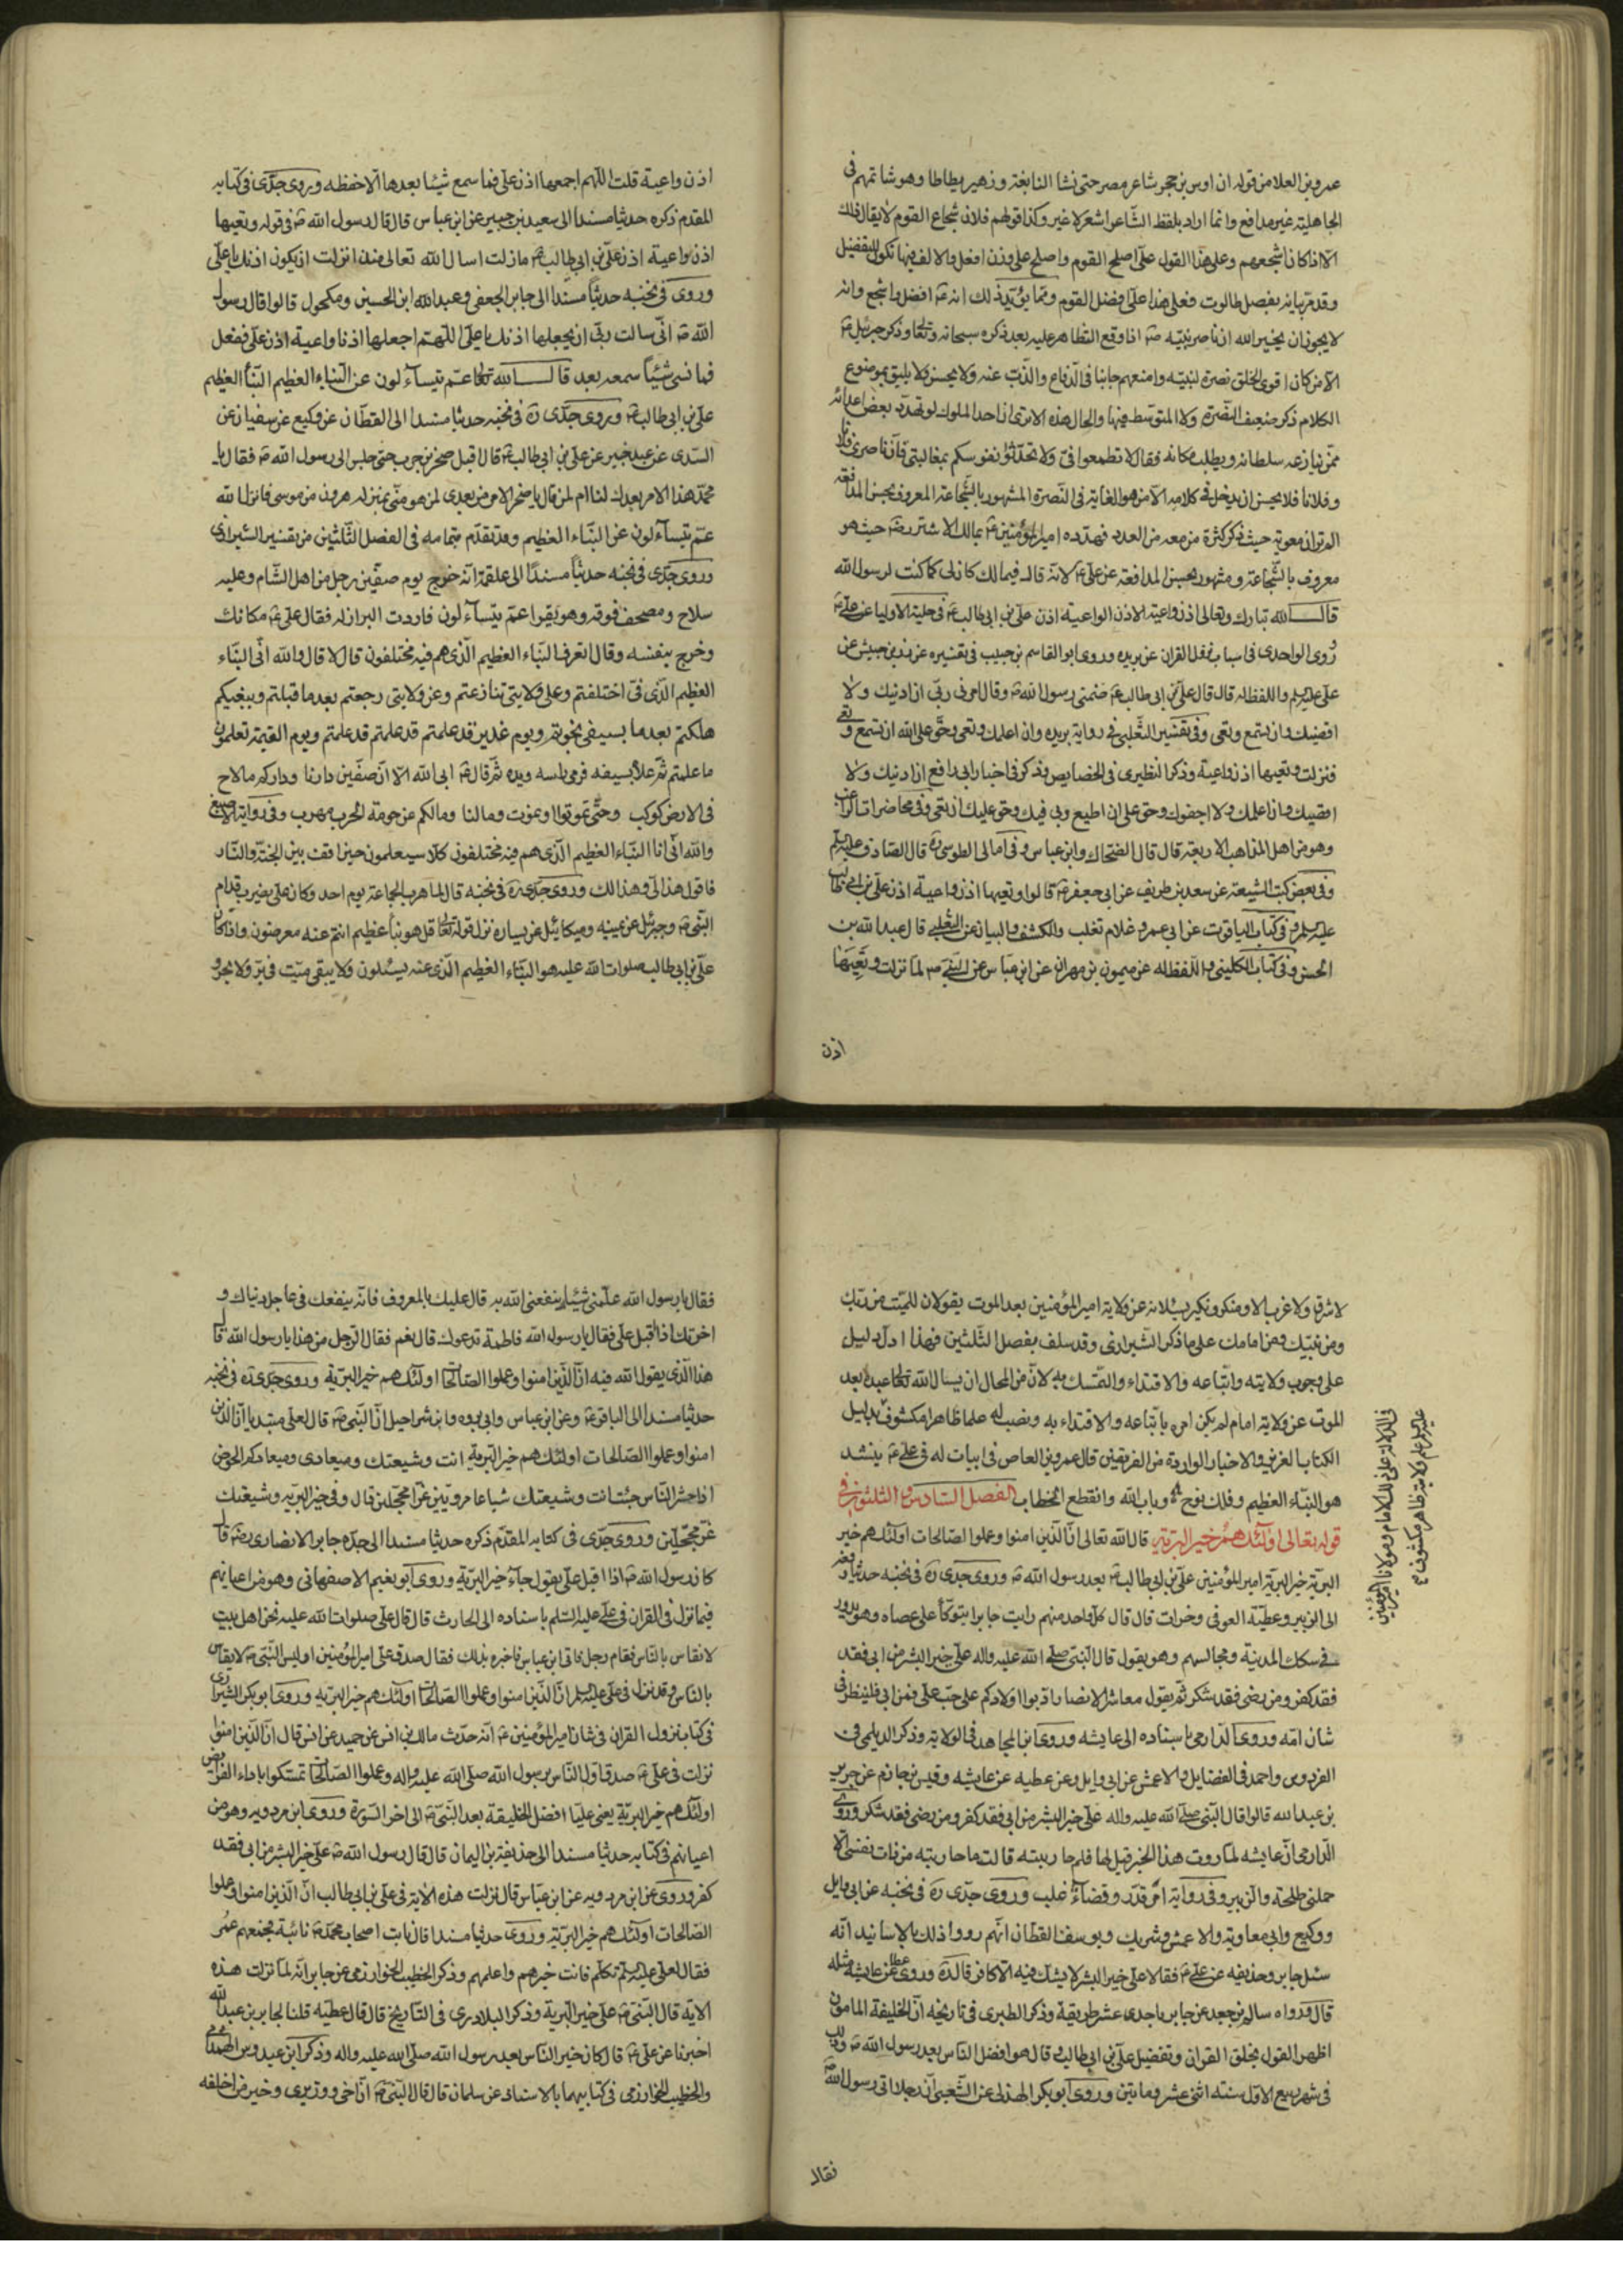 عمرو بن العلا من قوله ان اوس بن حجر شاعر مصر حتى نشا النابغة وزهير يطاطا وهو شاتمهم فى
الجاهلية غير مدافع وانما اراد بلفظ الشاعر اشعر لا غير وكذا قولهم فلان شجاع القوم لا يقال ذلك
الا اذا كان اشجعهم وعلى هذا القول على اصلح القوم واصلح على وزن افعل والالف فيها تكون للتفضيل
وقد مر بيانه بفصل طالوت فعلى هذا على افضل القوم ومما يؤيد ذلك انه افضل واشجع وانه
لا يجوز ان يخبر الله ان ناصر نبيه اذا وقع التظاهر عليه بعد ذكره سبحانه وتعالى وذكر جبرئيل
الا من كان اقوى الخلق نصرة لنبيه وامنعهم جانبا فى الدفاع والذب عنه ولا يحسن ولا يليق بموضوع
الكلام ذكر ضعيف النصرة ولا المتوسط فيها والحال هذه الا ترى ان احد الملوك لو تهدد بعض اعدائه
ممن ينازعه سلطانه ويطلب مكانه فقال لا تطمعوا فى ولا تحدثوا نفوسكم بمغالبتى فان ناصرى فلانا
وفلانا فلا يحسن ان يدخل فى كلامه الا من هو الغاية فى النصرة المشهور بالشجاعة المعروف بحسن المدافعة
الم تر ان معوية حيث ذكر كثرة من معه من العدد فهدده امير المؤمنين بمالك الاشتر حيث هو
معروف بالشجاعة ومشهور بحسن المدافعة عن على لانه قال فيه مالك كان لى كما كنت لرسول الله
قال الله تبارك وتعالى اذن واعية الاذن الواعية اذن على بن ابى طالب فى حلية الاوليا عن على
روى الواحدى فى اسباب نزول القران عن بريده وروى ابو القاسم بن حبيب فى تفسيره عن زر بن حبيش عن
على واللفظ له قال قال على بن ابى طالب ضمنى رسول الله وقال امرنى ربى ان ادنيك ولا
اقصيك وان تسمع وتعى وفى تفسير الثعلبى فى رواية بريده وان اعلمك وتعى وحق على الله ان تسمع وتعى
فنزلت وتعيها اذن واعية وذكر النطيرى فى الخصايص وذكر فى اخبار ابى رافع ان ادنيك ولا
اقصيك وان اعلمك ولا اجفوك وحق على ان اطيع ربى فيك وحق عليك ان تعى وفى محاضرات الراغب
وهو من اهل المذاهب الاربعة قال قال الضحاك وابن عباس وفى امالى الطوسى قال الصادق
وفى بعض كتب الشيعة عن سعد بن طريف عن ابى جعفر قالوا وتعيها اذن واعية اذن على بن ابى طالب
وفى كتاب الياقوت عن ابى عمرو غلام ثعلب والكشف والبيان عن الثعلبى قال عبد الله بن
الحسن وفى كتاب الكلينى واللفظ له عن ميمون بن مهران عن ابن عباس عن النبى لما نزلت وتعيها
اذن
اذن واعية قلت اللهم اجعلها اذن على فما سمع شيئا بعدها الا حفظه وروى جدى فى كتابه
المقدم ذكره حديثا مسندا الى سعيد بن جبير عن ابن عباس قال قال رسول الله فى قوله وتعيها
اذن واعية اذن على بن ابى طالب ما زلت اسال الله تعالى منذ انزلت ان يكون اذنك يا على
وروى فى نخبه حديثا مسندا الى جابر الجعفى وعبد الله ابن الحسين ومكحول قالوا قال رسول
الله انى سالت ربى ان يجعلها اذنك يا على اللهم اجعلها اذنا واعية اذن على ففعل
فما نسى شيئا سمعه بعد قال الله تعالى عم يتساءلون عن النباء العظيم النبأ العظيم
على بن ابى طالب وروى جدى فى نخبه حديثا مسندا الى القطان عن وكيع عن سفيان عن
السدى عن عبد خير عن على بن ابى طالب قال اقبل صخر بن حرب حتى جلس الى رسول الله فقال يا
محمد هذا الامر بعدك لنا ام لمن قال يا صخر الامر من بعدى لمن هو منى بمنزله هرون من موسى فانزل الله
عم يتساءلون عن النباء العظيم وقد تقدم بتمامه فى الفصل الثلثين من تفسير الشيرازى
وروى جدى فى نخبه حديثا مسندا الى علقمة انه خرج يوم صفين رجل من اهل الشام وعليه
سلاح ومصحف فوقه وهو يقرا عم يتساءلون فاردت البراز له فقال على مكانك
وخرج بنفسه وقال اتعرف النباء العظيم الذى هم فيه مختلفون قال لا قال والله انى النباء
العظيم الذى فى اختلفتم وعلى ولايتى تنازعتم وعن ولايتى رجعتم بعد ما قبلتم وببغيكم
هلكتم بعد ما بسيفى نجوتم ويوم غدير قد علمتم قد علمتم قد علمتم ويوم القيمة تعلمون
ما علمتم ثم علا بسيفه فرمى براسه ويده ثم قال ابى الله الا ان صفين دارنا وداركم ما لاح
فى الارض كوكب وحتى تموتوا او نموت وما لنا وما لكم عن حومة الحرب مهرب وفى رواية الاصبغ
والله انى انا النباء العظيم الذى هم فيه مختلفون كلا سيعلمون حين اقف بين الجنة والنار
فاقول هذا لى وهذا لك وروى جدى فى نخبه قال لما هرب الجماعة يوم احد وكان على يضرب قدام
النبى وجبرئيل عن يمينه وميكائيل عن يساره نزل قوله تعالى قل هو نبأ عظيم انتم عنه معرضون واذا كان
على بن ابى طالب صلوات الله عليه هو النباء العظيم الذى عنه يسئلون ولا يبقى ميت فى بر ولا بحر و
لا شرق ولا غرب الا ومنكر ونكير يسئلانه عن ولاية امير المؤمنين بعد الموت يقولان للميت من ربك
ومن نبيك ومن امامك على ما ذكر الشيرازى وقد سلف بفصل الثلثين فهذا ادل دليل
على وجوب ولايته واتباعه والاقتداء والتمسك به لان من المحال ان يسال الله تعالى عبده بعد
الموت عن ولاية امام لم يكن امره باتباعه والاقتداء به ونصب له علما ظاهرا مكشوفا بدليل
الكتاب العزيز والاخبار الواردة من الفريقين قال عمرو بن العاص فى ابيات له فى على ينشد
هو النباء العظيم وفلك نوح وباب الله وانقطع الخطاب الفصل السادس والثلثون فى
قوله تعالى اولئك هم خير البرية قال الله تعالى ان الذين امنوا وعملوا الصالحات اولئك هم خير
البرية خير البرية امير المؤمنين على بن ابى طالب بعد رسول الله وروى جدى فى نخبه حديثا رفعه
الى الزبير وعطية العوفى وخرات قال قال كل واحد منهم رايت جابرا يتوكأ على عصاه وهو يدور
فى سكك المدينة ومجالسهم وهو يقول قال النبى صلى الله عليه واله على خير البشر من ابى فقد
فقد كفر ومن رضى فقد شكر ثم يقول معاشر الانصار ادبوا اولادكم على حب على فمن ابى فلينظر فى
شان امه وروى الدارمى باسناده الى عايشه وروى ابن المجاهد فى الولاية وذكر الديلمى فى
الفردوس واحمد فى الفضايل والاعمش عن ابى وايل وعن عطيه عن عايشه وقيس بن حازم عن جرير
بن عبد الله قالوا قال النبى صلى الله عليه واله على خير البشر من ابى فقد كفر ومن رضى فقد شكر وروى
الدارمى ان عايشه لما روت هذا الخبر قيل لها فلم حاربيته قالت ما حاربته من ذات نفسى الا
حملنى طلحة والزبير وفى رواية امر قدر وقضاء غلب وروى جدى فى نخبه عن ابى وايل
ووكيع وابى معاوية والاعمش وشريك ويوسف القطان انهم رووا ذلك بالاسانيد انه
سئل جابر وحذيفه عن على فقالا على خير البشر لا يشك فيه الا كافر قال وروى عطا عن عايشة مثله
قال ورواه سالم بن جعد عن جابر باحدى عشر طريقة وذكر الطبرى فى تاريخه ان الخليفة المامون
اظهر القول بخلق القران وتفضيل على بن ابى طالب وقال هو افضل الناس بعد رسول الله وذلك
فى شهر ربيع الاول سنة اثنى عشر ومايتين وروى ابو بكر الهذلى عن الشعبى ان رجلا اتى رسول الله
فقال
فى الدلالة على ذلك الامام ومولانا امير المؤمنين
علم ولايته ظاهر مكشوف
فقال يا رسول الله علمنى شيئا ينفعنى الله به قال عليك بالمعروف فانه ينفعك فى عاجل دنياك و
اخرتك اذ اقبل على فقال يا رسول الله فاطمة تدعوك قال نعم فقال الرجل من هذا يا رسول الله قال
هذا الذى يقول الله فيه ان الذين امنوا وعملوا الصالحات اولئك هم خير البرية وروى جدى فى نخبه
حديثا مسندا الى الباقر وعن ابن عباس وابى برده وابن شراحيل ان النبى قال لعلى مبتديا ان الذين
امنوا وعملوا الصالحات اولئك هم خير البرية انت وشيعتك وميعادى وميعادكم الحوض
اذا حشر الناس جئت انت وشيعتك شباعا مرويين غرا محجلين قال وفى خير البريه وشيعتك
غر محجلين وروى جدى فى كتابه المقدم ذكره حديثا مسندا الى جده جابر الانصارى قال
كان رسول الله اذا اقبل على يقول جاء خير البرية وروى ابو نعيم الاصفهانى وهو من اعيانهم
فيما نزل فى القران فى على عليه السلم باسناده الى الحارث قال قال على صلوات الله عليه نحن اهل بيت
لا نقاس بالناس فقام رجل فاتى ابن عباس فاخبره بذلك فقال صدق على امير المؤمنين اوليس النبى لا يقاس
بالناس وقد نزل فى على ان الذين امنوا وعملوا الصالحات اولئك هم خير البريه وروى ابو بكر الشيرازى
فى كتاب نزول القران فى شان امير المؤمنين انه حدث مالك بن انس عن حميد عن انس قال ان الذين امنوا
نزلت فى على صدق اول الناس برسول الله صلى الله عليه واله وعملوا الصالحات تمسكوا باداء الفرائض
اولئك هم خير البرية يعنى عليا افضل الخليقة بعد النبى الى اخر السورة وروى ابن مردويه وهو من
اعيانهم فى كتابه حديثا مسندا الى حذيفة بن اليمان قال قال رسول الله على خير البشر من ابى فقد
كفر وروى عن ابن مردويه عن ابن عباس قال نزلت هذه الاية فى على بن ابى طالب ان الذين امنوا وعملوا
الصالحات اولئك هم خير البرية وروى حديثا مسندا قال نابت اصحاب محمد نائبة فجمعهم عمر
فقال لعلى تكلم فانت خيرهم واعلمهم وذكر الخطيب الخوارزمى عن جابر انه لما نزلت هذه
الاية قال النبى على خير البرية وذكر البلاذرى فى التاريخ قال قال عطيه قلنا لجابر بن عبد الله
اخبرنا عن على قال كان خير الناس بعد رسول الله صلى الله عليه واله وذكر ابن عبدوس الهمدانى
والخطيب الخوارزمى فى كتابيهما بالاسناد عن سلمان قال قال النبى ان اخى ووزيرى وخير من اخلفه